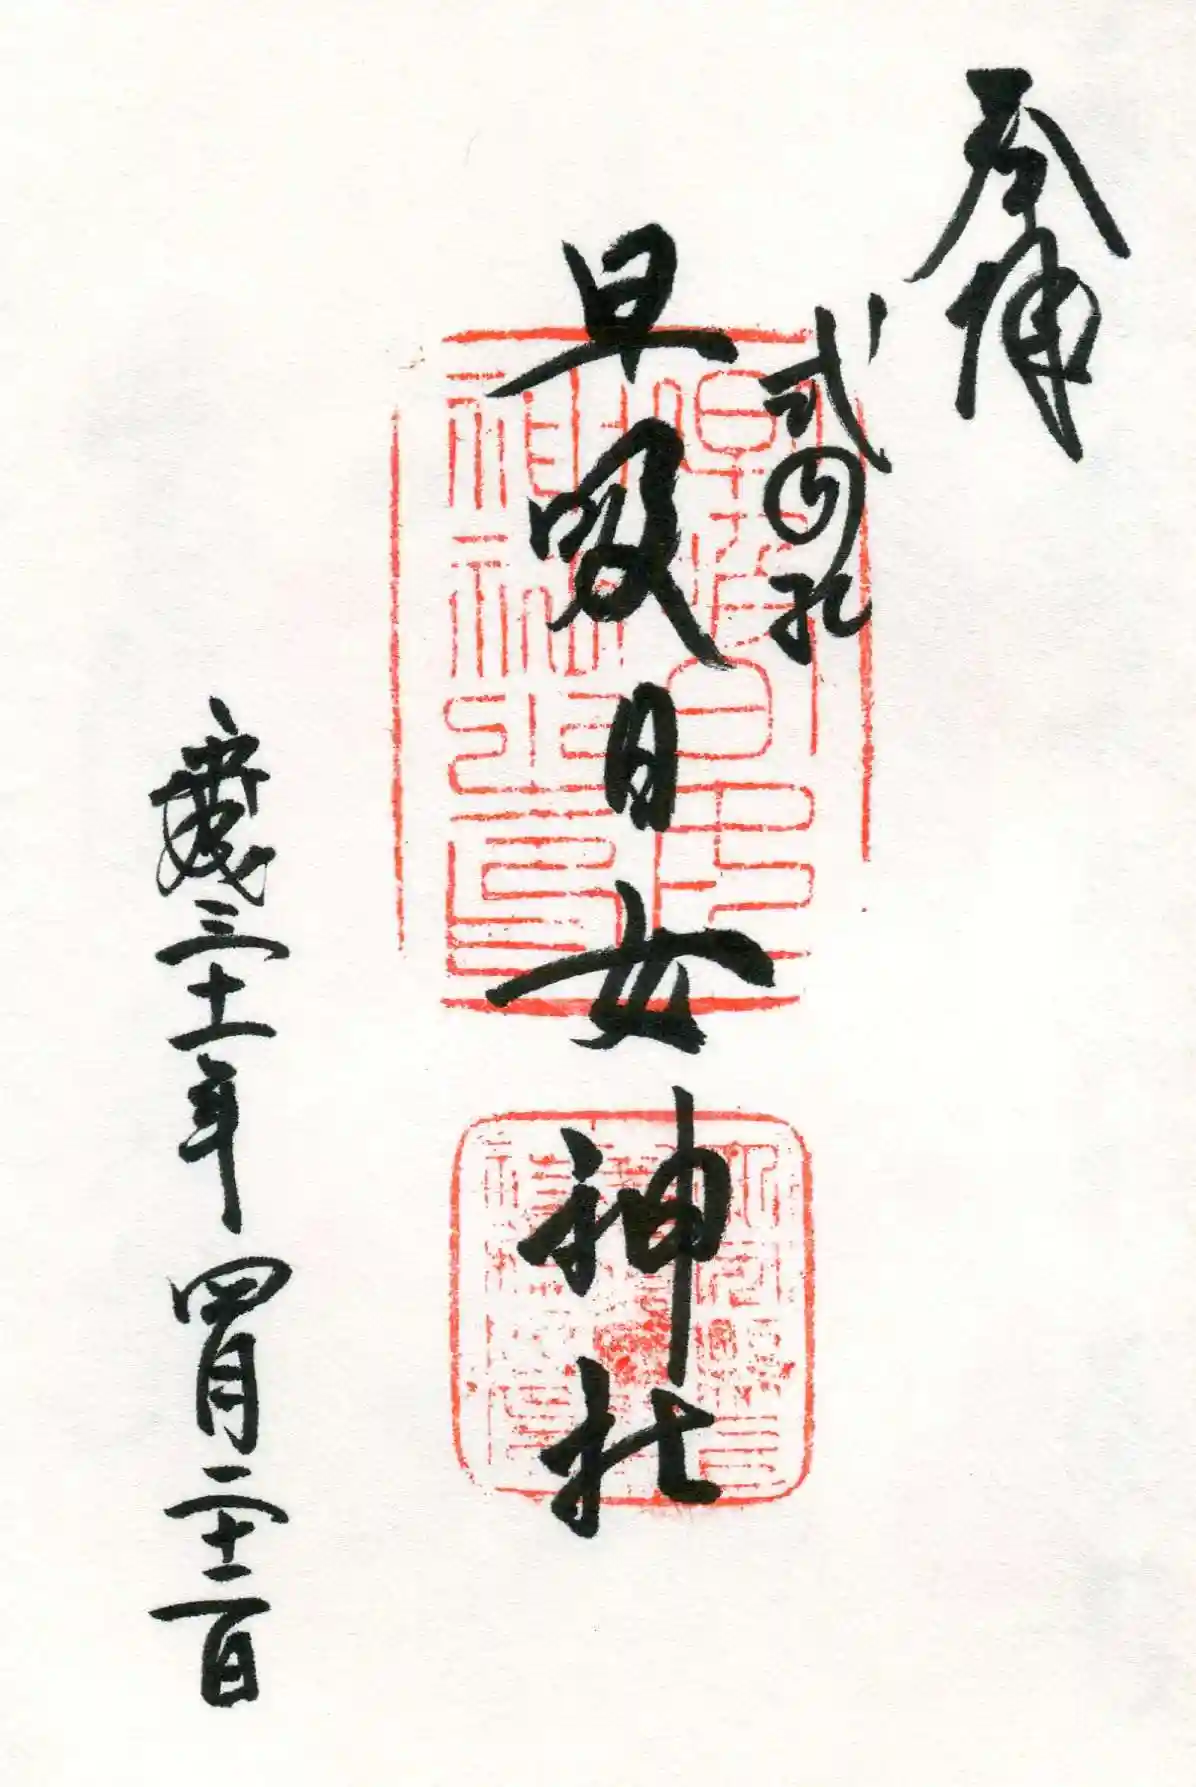 奉拝
式内社
早吸日女神社
平成三十一年四月二十二日
早吸日女
神社之印